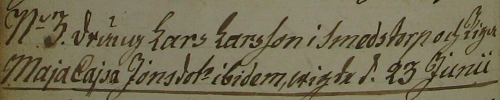 N:o 3. Dräng Lars Larsson i Smedstorp och Pigan
Maja Cajsa Jonsdotr ibidem, wigde d. 23 Junii